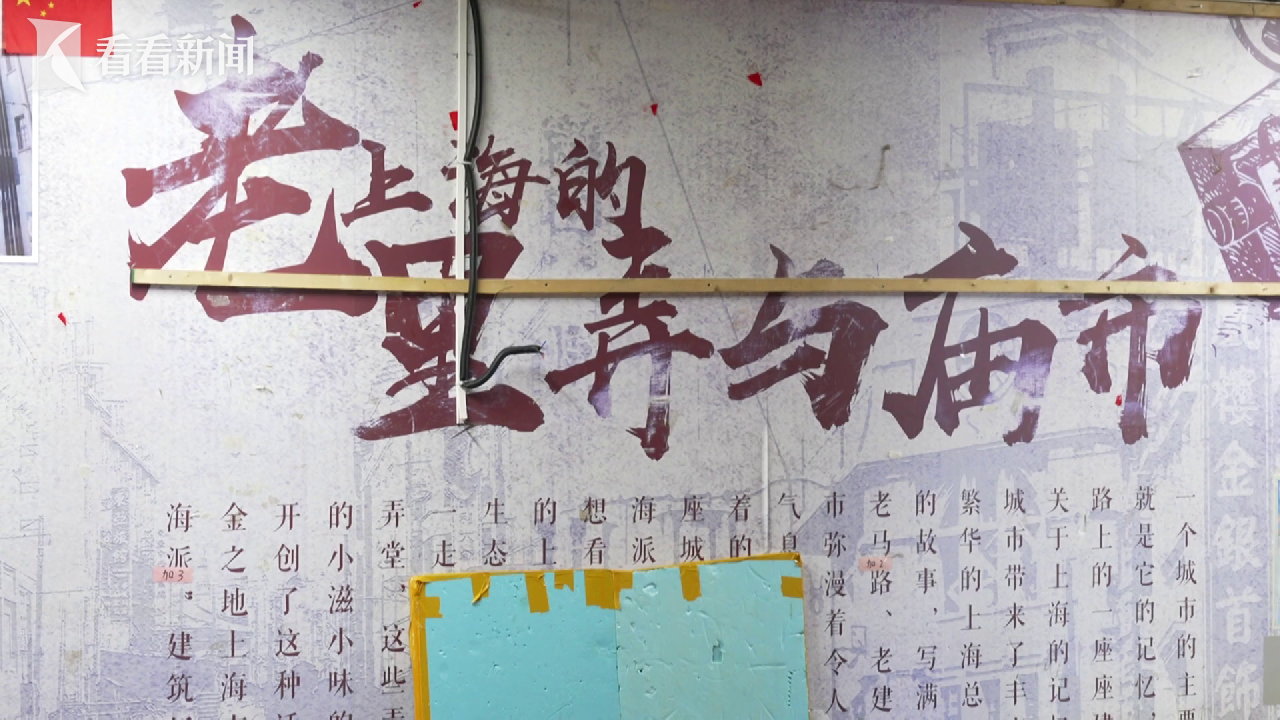 看看新闻
老上海的
里弄与庙市
樓金銀首飾
一个城市的主要
就是它的记忆，
路上的一座座
关于上海的记
城市带来了丰
繁华的上海总
的故事，写满
老马路、老建
市弥漫着令人
气息
着的
座城
海派
想看
的上
生态
一走
弄堂、这些弄
的小滋小味的
开创了这种
金之地上海
海派。建筑
加2
加3